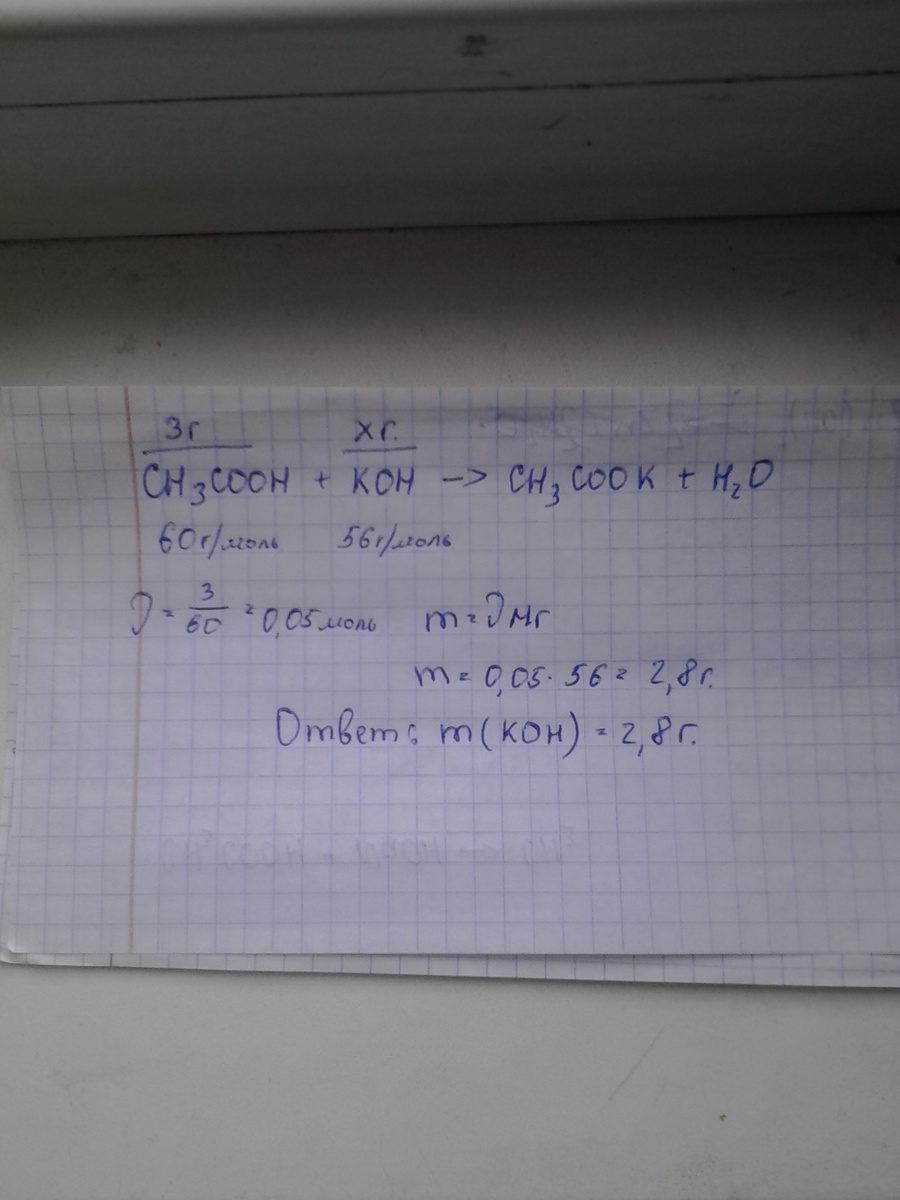 3г xг.
CH₃COOH + KOH -> CH₃COOK + H₂O
60г/моль 56г/моль
ν = 3/60 = 0,05 моль m = νMr
m = 0,05 · 56 = 2,8г.
Ответ: m(KOH) = 2,8г.